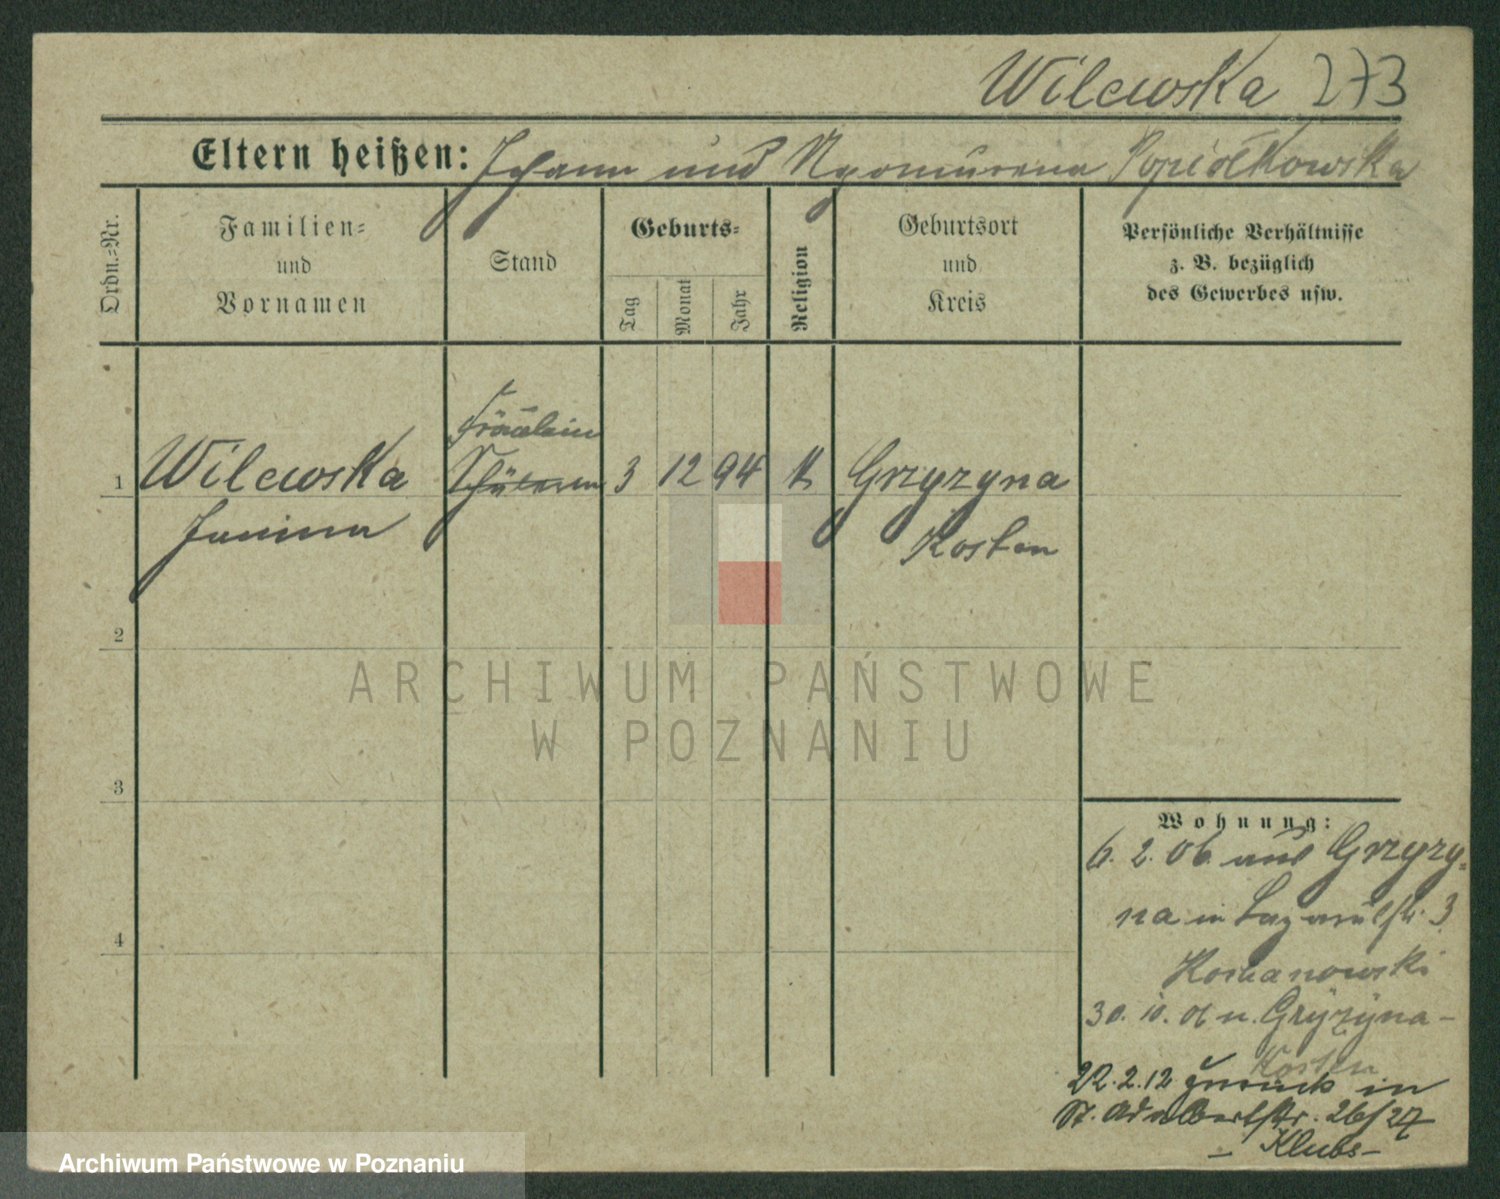 Wilewska 273
Eltern heißen: Johann und Popiołkowska
Ordn.=Nr.
Familien=
und
Vornamen
Stand
Geburts=
Tag
Monat
Jahr
Religion
Geburtsort
und
Kreis
Persönliche Verhältnisse
z. B. bezüglich
des Gewerbes usw.
Fräulein
1 Wilewska Schülerin 3 12 94 k Gryzyna
Janina Kosten
2
3
4
ARCHIWUM PAŃSTWOWE
W POZNANIU
Wohnung:
6. 2. 06. aus Gryzy-
na in Lazarusstr. 3
30. 10. 06 n. Gryzyna -
Kosten
22.2.12 zurück in
St. Adalbertstr. 26/27
- Klubs -
Archiwum Państwowe w Poznaniu